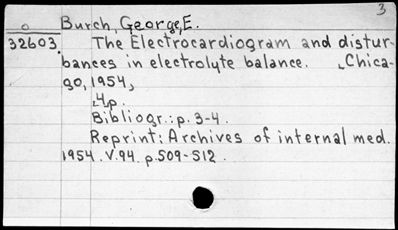 3
o Burch, George, E.
32603. The Electrocardiogram and distur-
bances in electrolyte balance. Chica-
go, 1954,
4p.
Bibliogr.: p. 3-4.
Reprint: Archives of internal med.
1954. V.94. p.509-512.